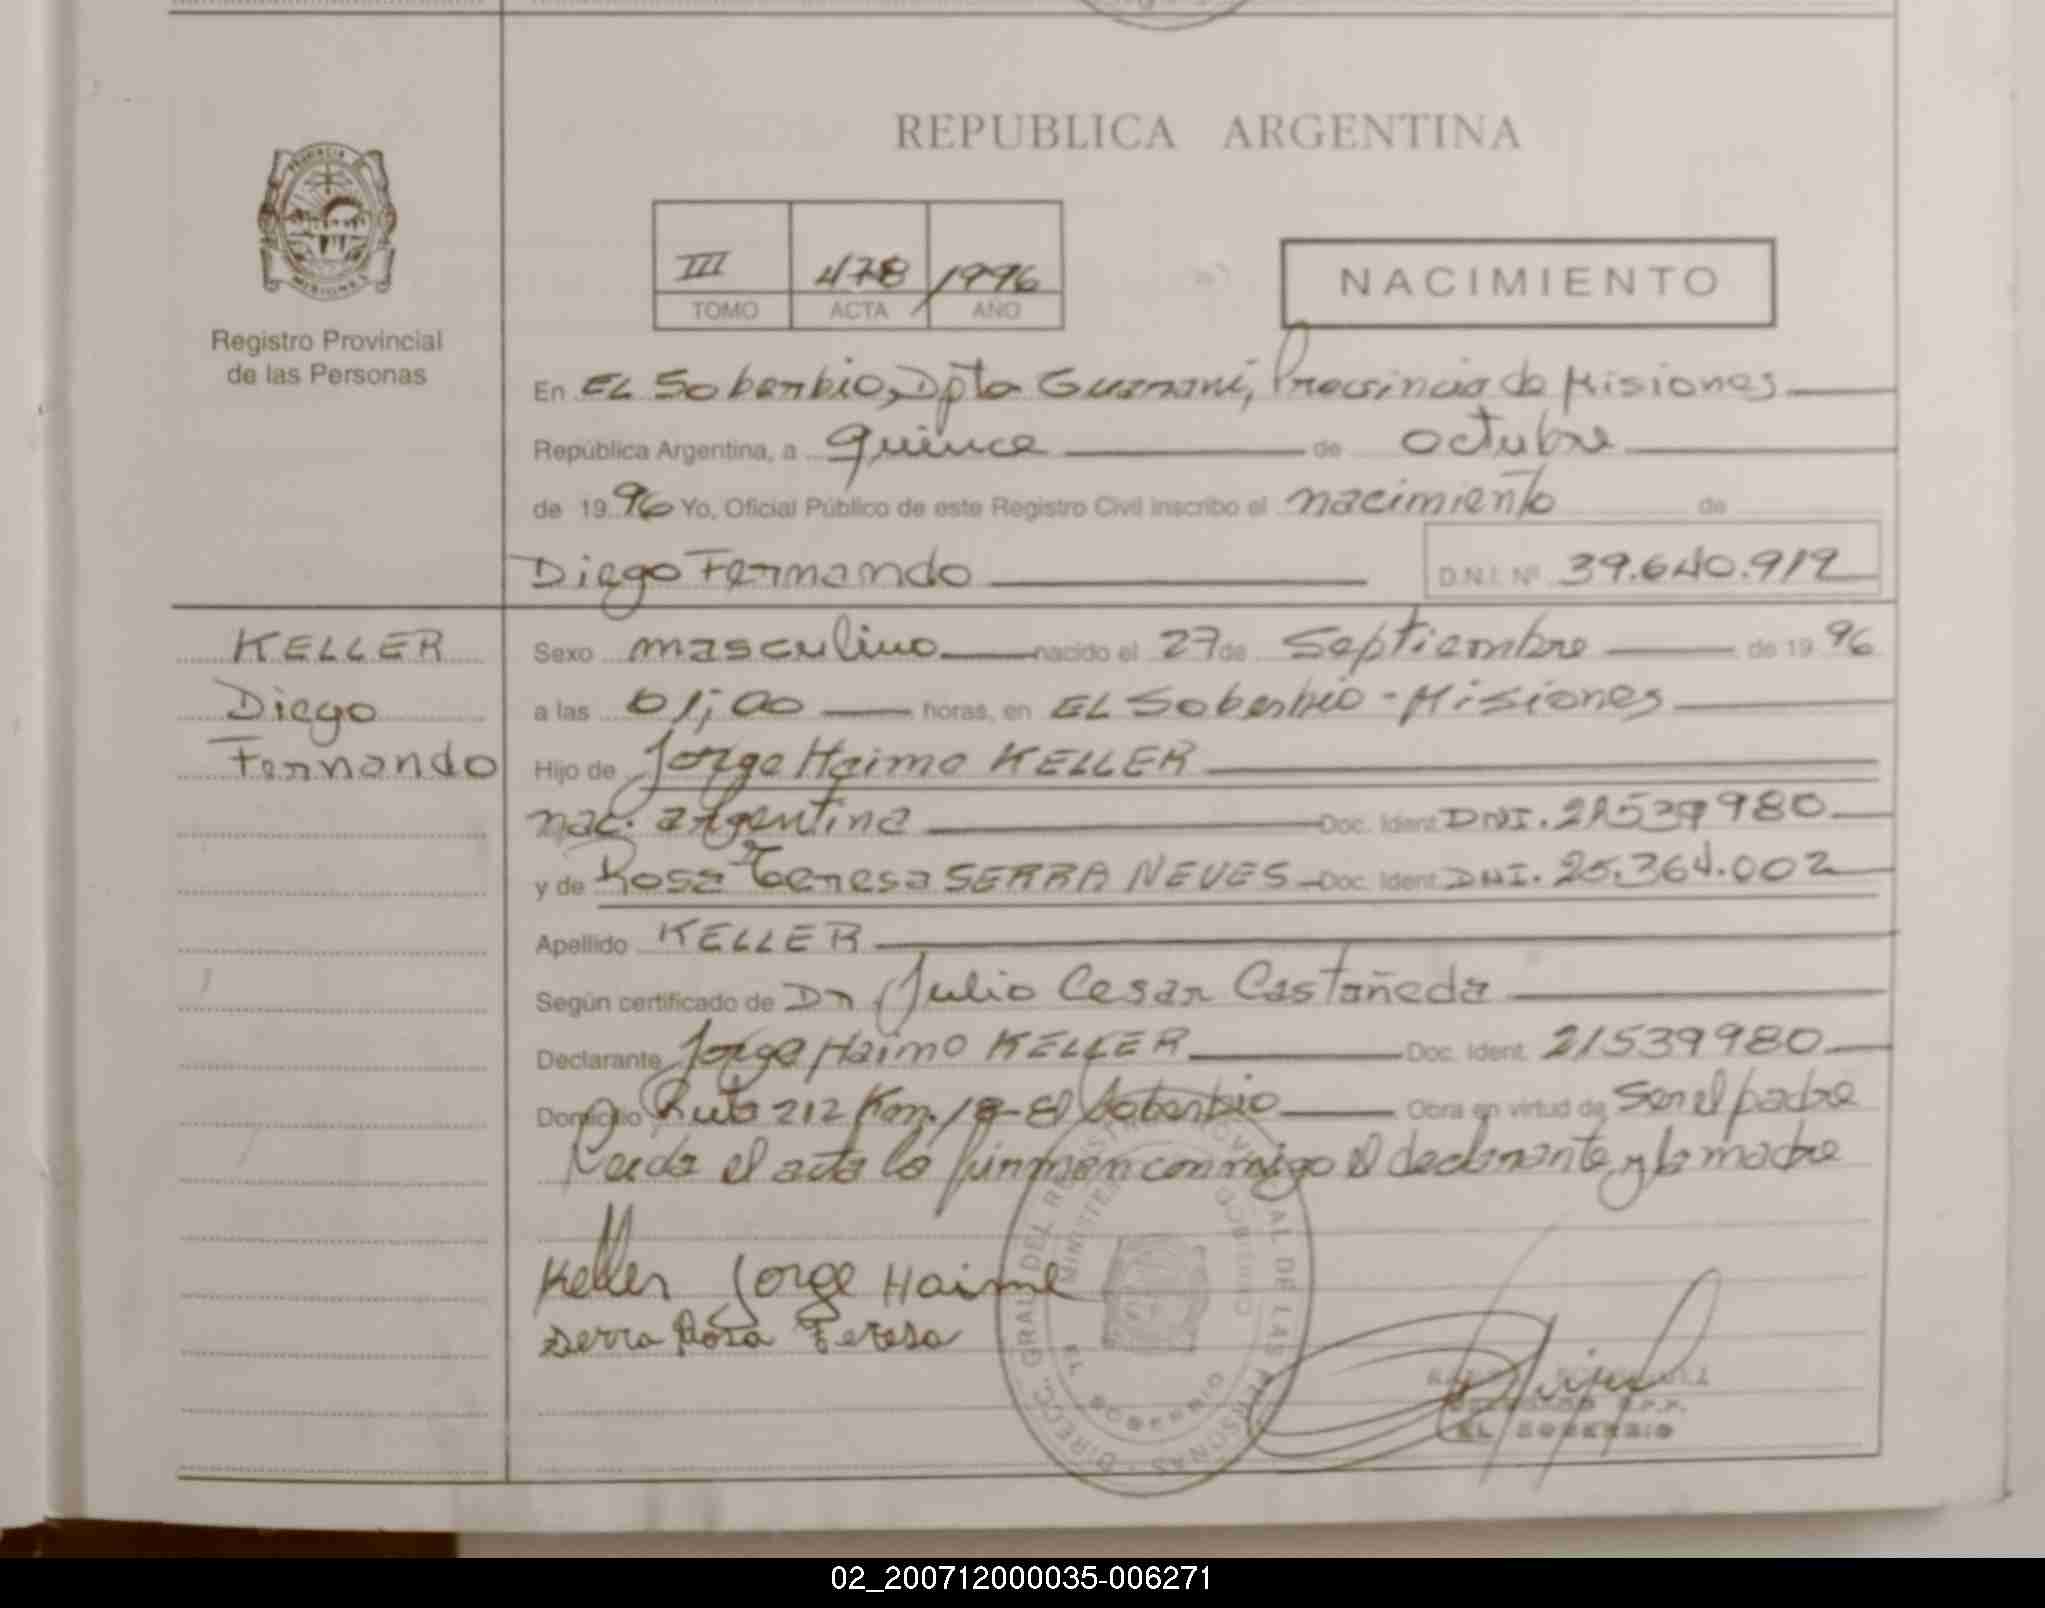 REPUBLICA ARGENTINA
PROVINCIA DE
MISIONES
Registro Provincial
de las Personas
III 478 1996
TOMO ACTA AÑO
NACIMIENTO
En EL Soberbio, Dpto Guaraní, Provincia de Misiones
República Argentina, a quince de octubre
de 1996 Yo, Oficial Público de este Registro Civil inscribo el nacimiento de
Diego Fernando D.N.I. Nº 39.640.919
KELLER
Diego
Fernando
Sexo masculino nacido el 27 de Septiembre de 1996
a las 01;00 horas, en EL Soberbio - Misiones
Hijo de Jorge Haimo KELLER
nac. argentina Doc. Ident. DNI. 21539980
y de Rosa Teresa SERRA NEVES Doc. Ident. DNI. 25.364.002
Apellido KELLER
Según certificado de Dr Julio Cesar Castañeda
Declarante Jorge Haimo KELLER Doc. Ident. 21539980
Domicilio Ruta 212 Km. 18 - El Soberbio Obra en virtud de ser el padre
Leida el acta la firman conmigo el declarante y la madre
Keller Jorge Haime
Serra Rosa Teresa
DIRECC. GRAL. DEL REGISTRO PROVINCIAL DE LAS PERSONAS
MINISTERIO GOBIERNO
EL SOBERBIO
DELEGADO R.P.P.
EL SOBERBIO
02_200712000035-006271